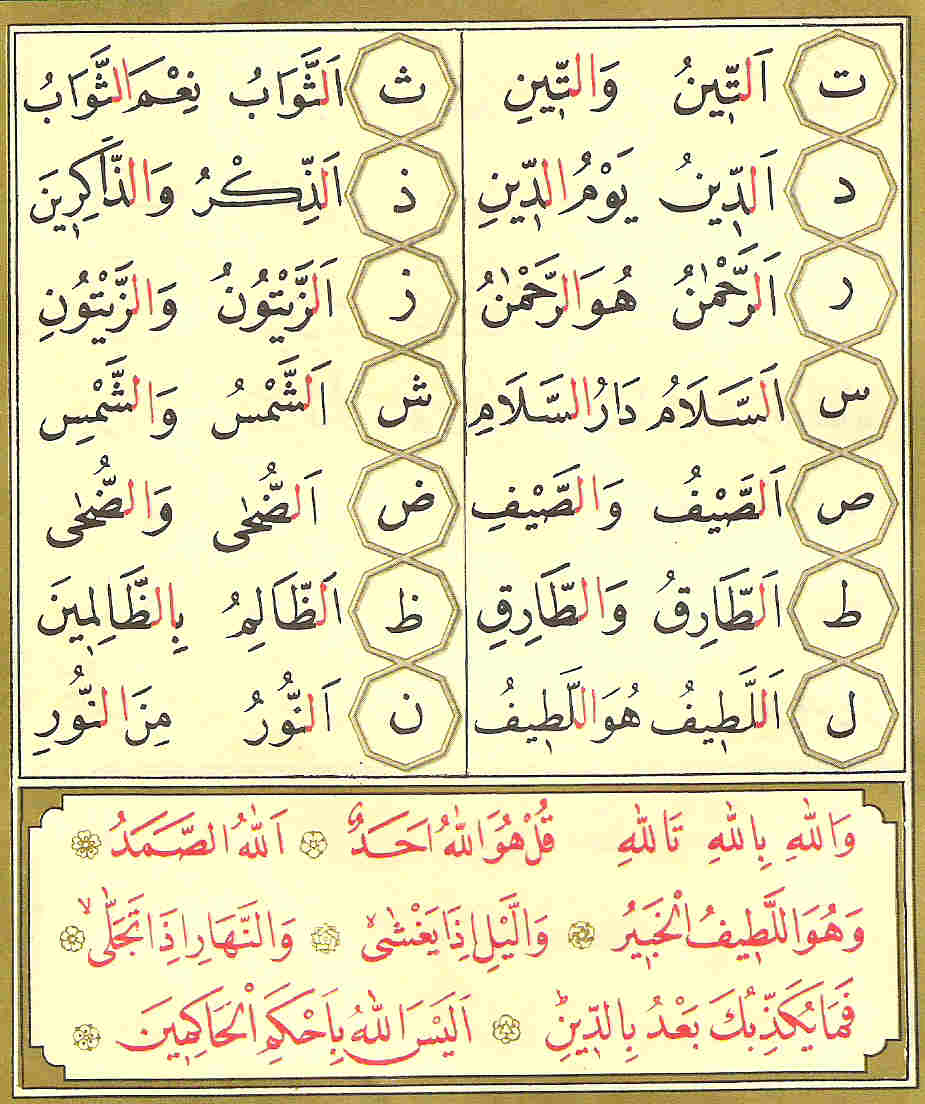 ت اَلتِّينُ وَالتِّينِ ث اَلثَّوَابُ نِعْمَ الثَّوَابُ
د اَلدِّينُ يَوْمُ الدِّينِ ذ اَلذِّكْرُ وَالذَّاكِرِينَ
ر اَلرَّحْمٰنُ هُوَ الرَّحْمٰنُ ز اَلزَّيْتُونُ وَالزَّيْتُونِ
س اَلسَّلَامُ دَارُ السَّلَامِ ش اَلشَّمْسُ وَالشَّمْسِ
ص اَلصَّيْفُ وَالصَّيْفِ ض اَلضُّحٰى وَالضُّحٰى
ط اَلطَّارِقُ وَالطَّارِقِ ظ اَلظَّالِمُ بِالظَّالِمِينَ
ل اَللَّطِيفُ هُوَ اللَّطِيفُ ن اَلنُّورُ مِنَ النُّورِ
وَاللّٰهِ بِاللّٰهِ تَاللّٰهِ قُلْ هُوَ اللّٰهُ اَحَدٌ اَللّٰهُ الصَّمَدُ
وَهُوَ اللَّطِيفُ الْخَبِيرُ وَالَّيْلِ اِذَا يَغْشٰىۙ وَالنَّهَارِ اِذَا تَجَلّٰىۙ
فَمَا يُكَذِّبُكَ بَعْدُ بِالدِّينِۜ اَلَيْسَ اللّٰهُ بِاَحْكَمِ الْحَاكِمِينَ